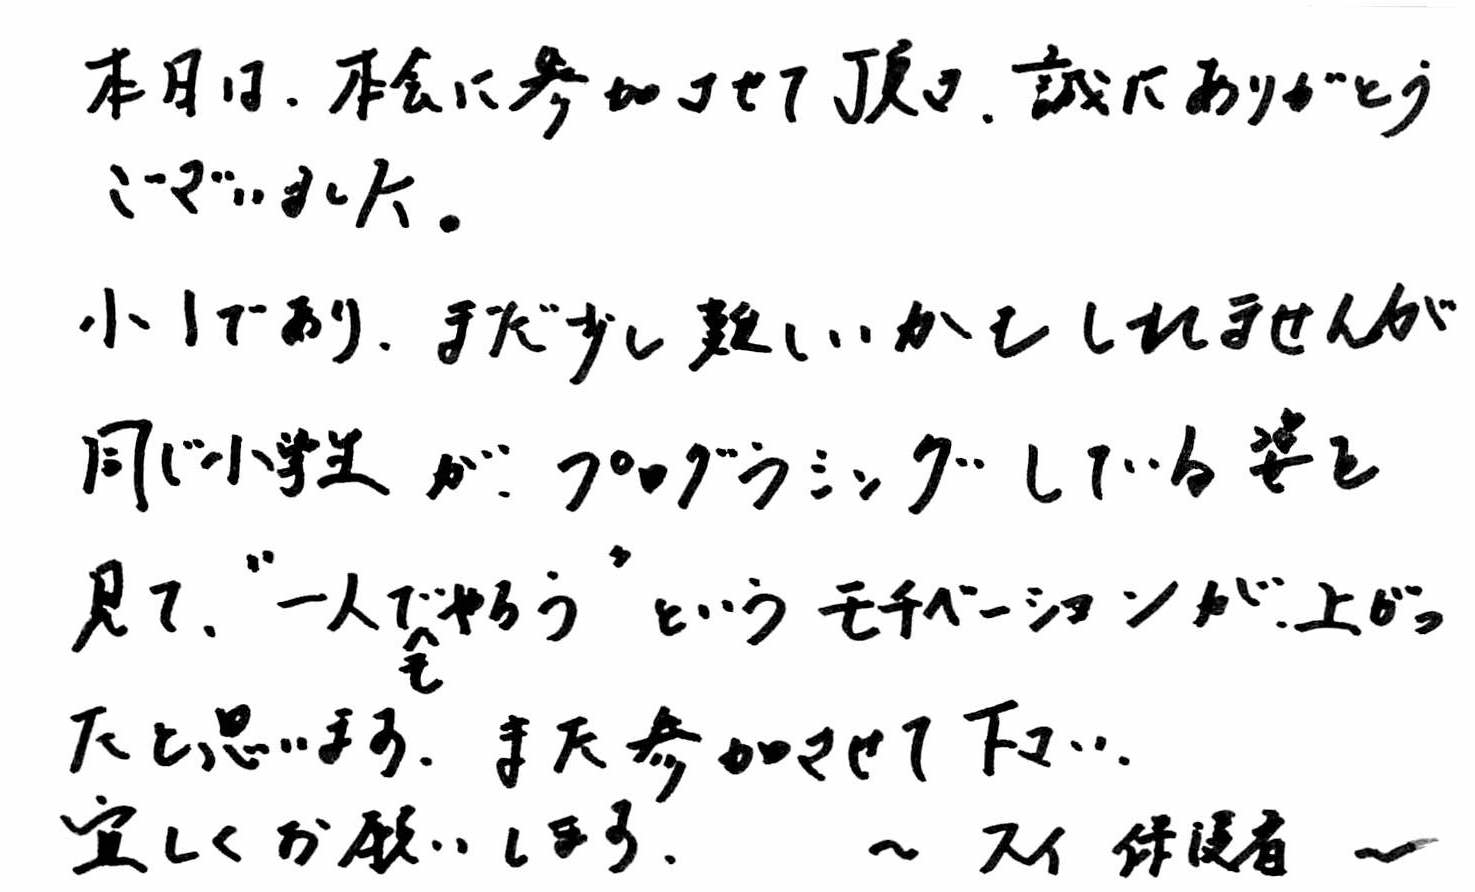 本日は、本会に参加させて頂き、誠にありがとう
ございました。
小1であり、まだ少し難しいかもしれませんが
同じ小学生が、プログラミングしている姿を
見て、"一人でもやろう"というモチベーションが、上がっ
たと思います。また参加させて下さい。
宜しくお願いします。 ～ スイ 保護者 ～